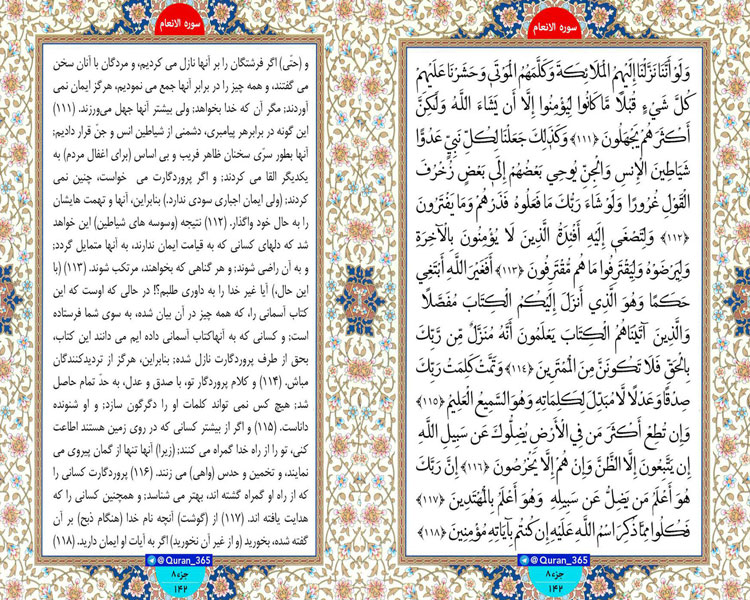 سوره الانعام
وَلَوْ أَنَّنَا نَزَّلْنَا إِلَيْهِمُ الْمَلَائِكَةَ وَكَلَّمَهُمُ الْمَوْتَىٰ وَحَشَرْنَا عَلَيْهِمْ
كُلَّ شَيْءٍ قُبُلًا مَّا كَانُوا لِيُؤْمِنُوا إِلَّا أَن يَشَاءَ اللَّهُ وَلَٰكِنَّ
أَكْثَرَهُمْ يَجْهَلُونَ ﴿۱۱۱﴾ وَكَذَٰلِكَ جَعَلْنَا لِكُلِّ نَبِيٍّ عَدُوًّا
شَيَاطِينَ الْإِنسِ وَالْجِنِّ يُوحِي بَعْضُهُمْ إِلَىٰ بَعْضٍ زُخْرُفَ
الْقَوْلِ غُرُورًا وَلَوْ شَاءَ رَبُّكَ مَا فَعَلُوهُ فَذَرْهُمْ وَمَا يَفْتَرُونَ
﴿۱۱۲﴾ وَلِتَصْغَىٰ إِلَيْهِ أَفْئِدَةُ الَّذِينَ لَا يُؤْمِنُونَ بِالْآخِرَةِ
وَلِيَرْضَوْهُ وَلِيَقْتَرِفُوا مَا هُم مُّقْتَرِفُونَ ﴿۱۱۳﴾ أَفَغَيْرَ اللَّهِ أَبْتَغِي
حَكَمًا وَهُوَ الَّذِي أَنزَلَ إِلَيْكُمُ الْكِتَابَ مُفَصَّلًا
وَالَّذِينَ آتَيْنَاهُمُ الْكِتَابَ يَعْلَمُونَ أَنَّهُ مُنَزَّلٌ مِّن رَّبِّكَ
بِالْحَقِّ فَلَا تَكُونَنَّ مِنَ الْمُمْتَرِينَ ﴿۱۱۴﴾ وَتَمَّتْ كَلِمَتُ رَبِّكَ
صِدْقًا وَعَدْلًا لَّا مُبَدِّلَ لِكَلِمَاتِهِ وَهُوَ السَّمِيعُ الْعَلِيمُ ﴿۱۱۵﴾
وَإِن تُطِعْ أَكْثَرَ مَن فِي الْأَرْضِ يُضِلُّوكَ عَن سَبِيلِ اللَّهِ
إِن يَتَّبِعُونَ إِلَّا الظَّنَّ وَإِنْ هُمْ إِلَّا يَخْرُصُونَ ﴿۱۱۶﴾ إِنَّ رَبَّكَ
هُوَ أَعْلَمُ مَن يَضِلُّ عَن سَبِيلِهِ وَهُوَ أَعْلَمُ بِالْمُهْتَدِينَ ﴿۱۱۷﴾
فَكُلُوا مِمَّا ذُكِرَ اسْمُ اللَّهِ عَلَيْهِ إِن كُنتُم بِآيَاتِهِ مُؤْمِنِينَ ﴿۱۱۸﴾
@Quran_365
جزء ۸
۱۴۲
سوره الانعام
و (حتّی) اگر فرشتگان را بر آنها نازل می کردیم، و مردگان با آنان سخن
می گفتند، و همه چیز را در برابر آنها جمع می نمودیم، هرگز ایمان نمی
آوردند; مگر آن که خدا بخواهد; ولی بیشتر آنها جهل می‌ورزند. (۱۱۱)
این گونه در برابرهر پیامبری، دشمنی از شیاطین انس و جنّ قرار دادیم;
آنها بطور سرّی سخنان ظاهر فریب و بی اساس (برای اغفال مردم) به
یکدیگر القا می کردند; و اگر پروردگارت می خواست، چنین نمی
کردند; (ولی ایمان اجباری سودی ندارد.) بنابراین، آنها و تهمت هایشان
را به حال خود واگذار. (۱۱۲) نتیجه (وسوسه های شیاطین) این خواهد
شد که دلهای کسانی که به قیامت ایمان ندارند، به آنها متمایل گردد;
و به آن راضی شوند; و هر گناهی که بخواهند، مرتکب شوند. (۱۱۳) (با
این حال،) آیا غیر خدا را به داوری طلبم؟! در حالی که اوست که این
کتاب آسمانی را، که همه چیز در آن بیان شده، به سوی شما فرستاده
است; و کسانی که به آنهاکتاب آسمانی داده ایم می دانند این کتاب،
بحق از طرف پروردگارت نازل شده; بنابراین، هرگز از تردیدکنندگان
مباش. (۱۱۴) و کلام پروردگار تو، با صدق و عدل، به حدّ تمام حاصل
شد; هیچ کس نمی تواند کلمات او را دگرگون سازد; و او شنونده
داناست. (۱۱۵) و اگر از بیشتر کسانی که در روی زمین هستند اطاعت
کنی، تو را از راه خدا گمراه می کنند; (زیرا) آنها تنها از گمان پیروی می
نمایند، و تخمین و حدس (واهی) می زنند. (۱۱۶) پروردگارت کسانی را
که از راه او گمراه گشته اند، بهتر می شناسد; و همچنین کسانی را که
هدایت یافته اند. (۱۱۷) از (گوشت) آنچه نام خدا (هنگام ذبح) بر آن
گفته شده، بخورید (و از غیر آن نخورید) اگر به آیات او ایمان دارید. (۱۱۸)
@Quran_365
جزء ۸
۱۴۲